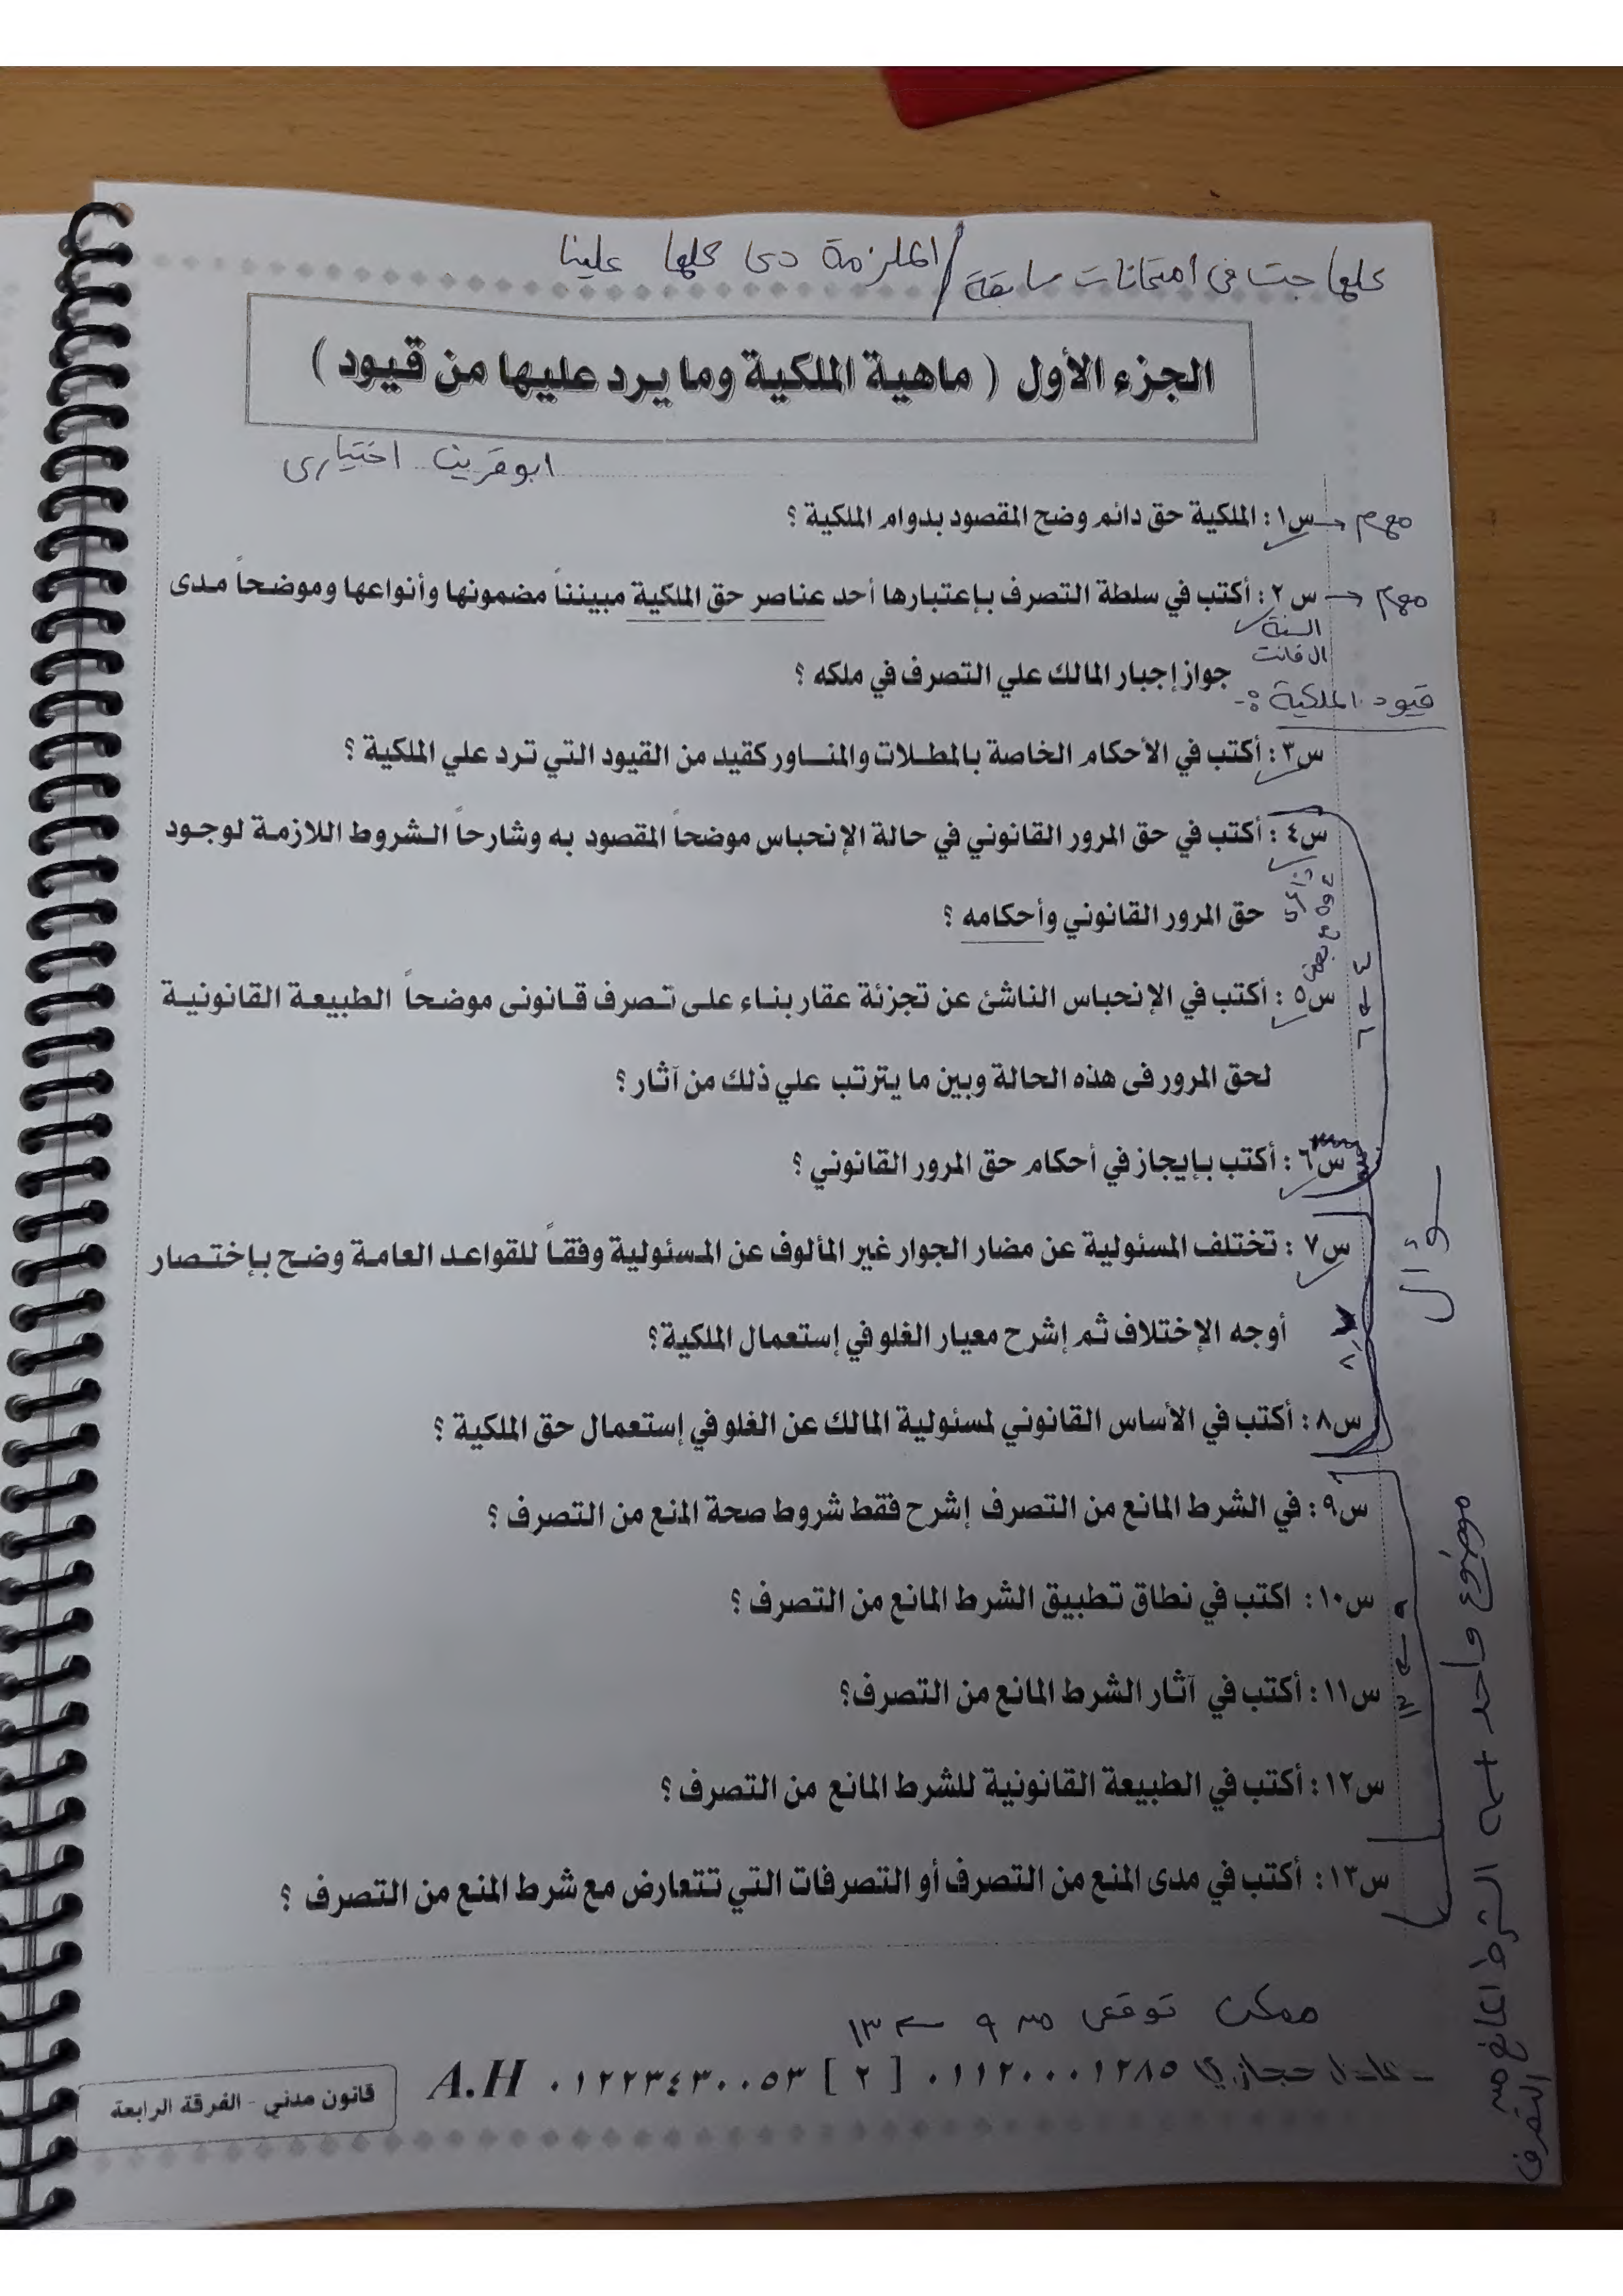 كلها جت فى امتحانات سابقة / الملزمة دى كلها علينا
الجزء الأول ( ماهية الملكية وما يرد عليها من قيود )
ابوقريت اختيارى
مهم ← س١ : الملكية حق دائم وضح المقصود بدوام الملكية ؟
مهم ← س٢ : أكتب في سلطة التصرف بإعتبارها أحد عناصر حق الملكية مبيننأ مضمونها وأنواعها وموضحاً مدى
السنة
ال فاتت
جواز إجبار المالك علي التصرف في ملكه ؟
قيود الملكية :-
س٣ : أكتب في الأحكام الخاصة بالمطلات والمناور كقيد من القيود التي ترد علي الملكية ؟
س٤ : أكتب في حق المرور القانوني في حالة الإنحباس موضحاً المقصود به وشارحاً الشروط اللازمة لوجود
حق المرور القانوني وأحكامه ؟
٤ و ٥ مع بعض
٤ ← ٦
س٥ : أكتب في الإنحباس الناشئ عن تجزئة عقار بناء على تصرف قانونى موضحاً الطبيعة القانونية
لحق المرور فى هذه الحالة وبين ما يترتب علي ذلك من آثار ؟
س٦ : أكتب بإيجاز في أحكام حق المرور القانوني ؟
سؤال
س٧ : تختلف المسئولية عن مضار الجوار غير المألوف عن المسئولية وفقاً للقواعد العامة وضح بإختصار
أوجه الإختلاف ثم إشرح معيار الغلو في إستعمال الملكية؟
٨
س٨ : أكتب في الأساس القانوني لمسئولية المالك عن الغلو في إستعمال حق الملكية ؟
س٩ : في الشرط المانع من التصرف إشرح فقط شروط صحة المنع من التصرف ؟
س١٠ : اكتب في نطاق تطبيق الشرط المانع من التصرف ؟
٩ ← ١٣
س١١ : أكتب في آثار الشرط المانع من التصرف؟
س١٢ : أكتب في الطبيعة القانونية للشرط المانع من التصرف ؟
س١٣ : أكتب في مدى المنع من التصرف أو التصرفات التي تتعارض مع شرط المنع من التصرف ؟
موضوع واحد الشرط المانع من التصرف
ممكن توقعى من ٩ ← ١٣
عادل حجازي ٠١١٢٠٠٠١٢٨٥ [ ٢ ] ٠١٢٢٣٤٣٠٠٥٣ A.H
قانون مدني - الفرقة الرابعة